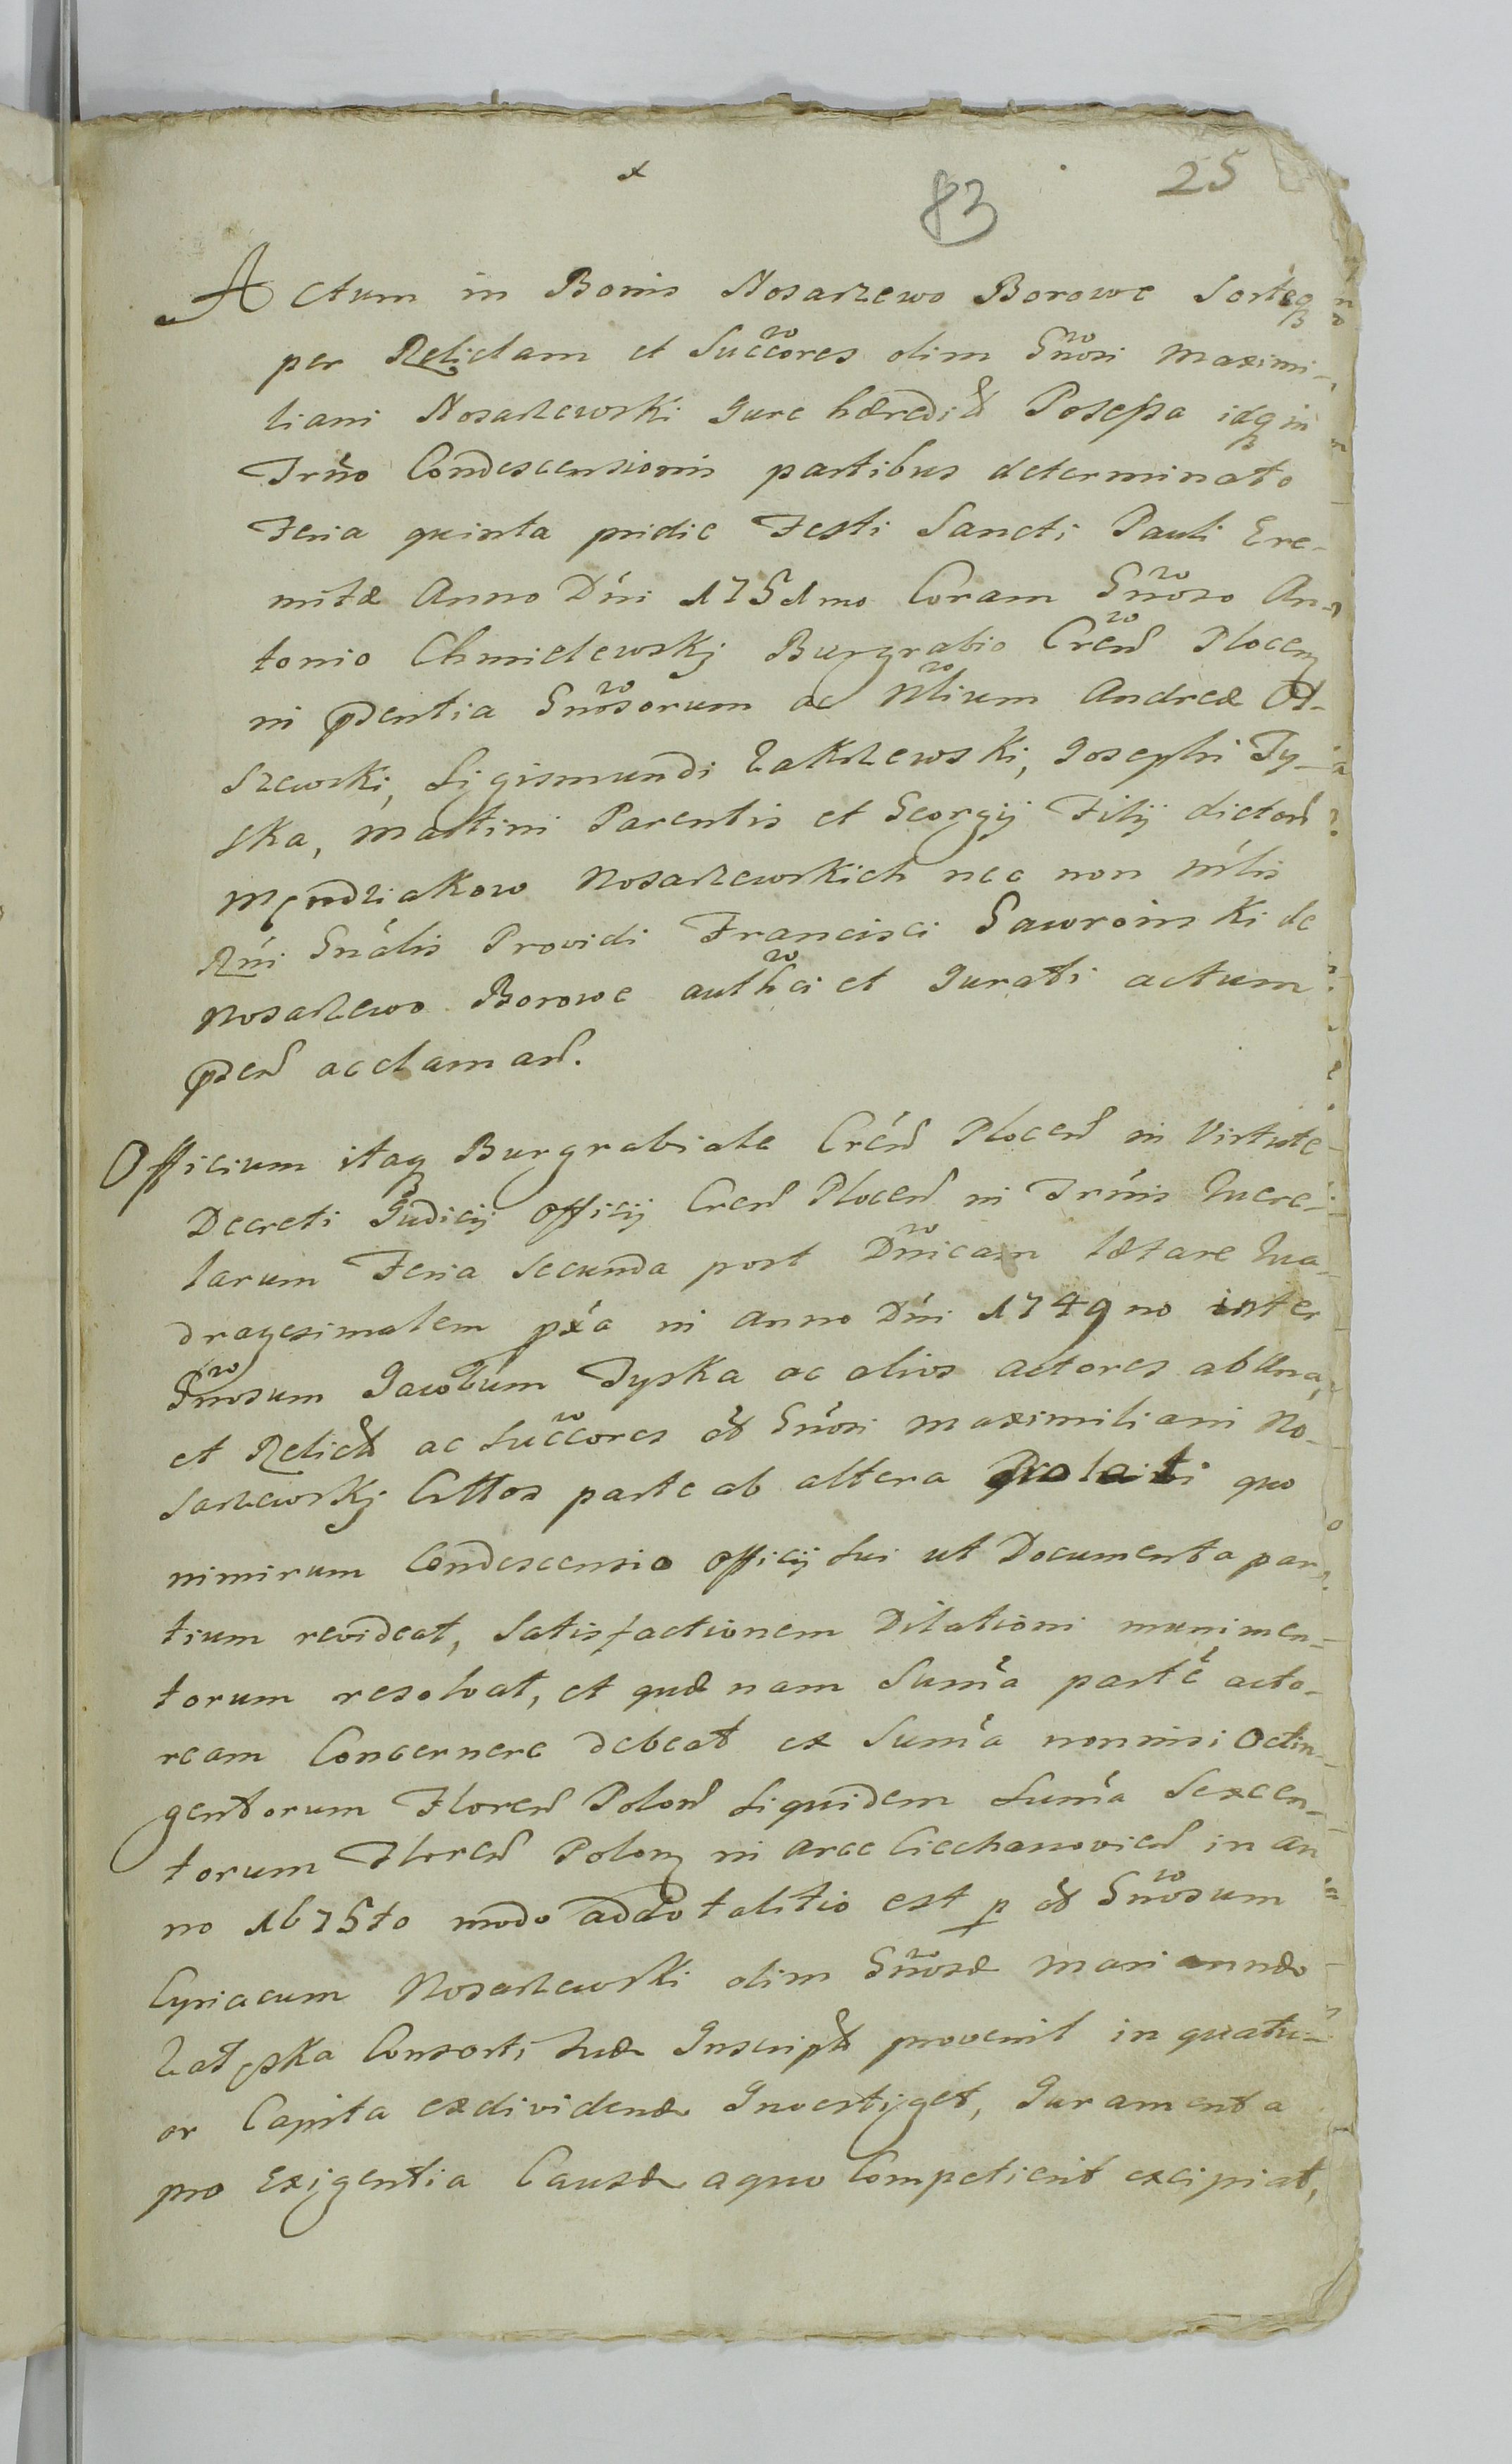 x
83 25
Actum in Bonis Nosarzewo Borowe Sorteq
per Relictam et Succores olim Gnosi Maximi-
liani Nosarzewski Jure hæredit Posessa idq in
Trno Condescensionis partibus determinato
Feria quinta pridie Festi Sancti Pauli Ere-
mitæ Anno Dni 1751mo Coram Gnoso An-
tonio Chmielewskj Burgrabio Cren Plocen
in pdentia Gnosorum ac Nlium Andreæ Ol-
szewski, Sigismundi Zakrzewski, Josephi Ty-
ska, Martini Parentis et Georgij Filij dictor
Mędrzakow Nosarzewskich nec non Mlis
Rni Gnalis Providi Francisci Gawroinski de
Nosarzewo Borowe authci et Jurati actum
pden acclaman.
Officium itaq Burgrabiale Cren Plocen in Virtute
Decreti Judicij Officij Cren Plocen in Trnis Quere-
larum Feria Secunda post Dnicam Lætare Qua-
dragesimalem pxa in anno Dni 1749no inter
Gnosum Jacobum Tyska ac alios actores ab una,
et Relict ac Succores ol Gnosi Maximiliani No-
sarzewskj Cittos parte ab altera prolati quo
nimirum Condescensio officij sui ut Documenta par-
tium revideat, Satisfactionem Dilationi munimen-
torum resolvat, et quænam Suma parte acto-
ream Concernere debeat ex Suma nonnisi Octin-
gentorum Floren Polon Siquidem Suma Sexcen-
torum Floren Polon in arce Ciechanovien in an
no 1675to modo addotalitio est p ol Gnosum
Cyriacum Nosarzewski olim Gnosæ Mariannæ
Consorti suæ Inscript provenit in quatu-
or Capita exdividend Investiget, Juramenta
pro Exigentia Causæ aquo Competierit excipiat,